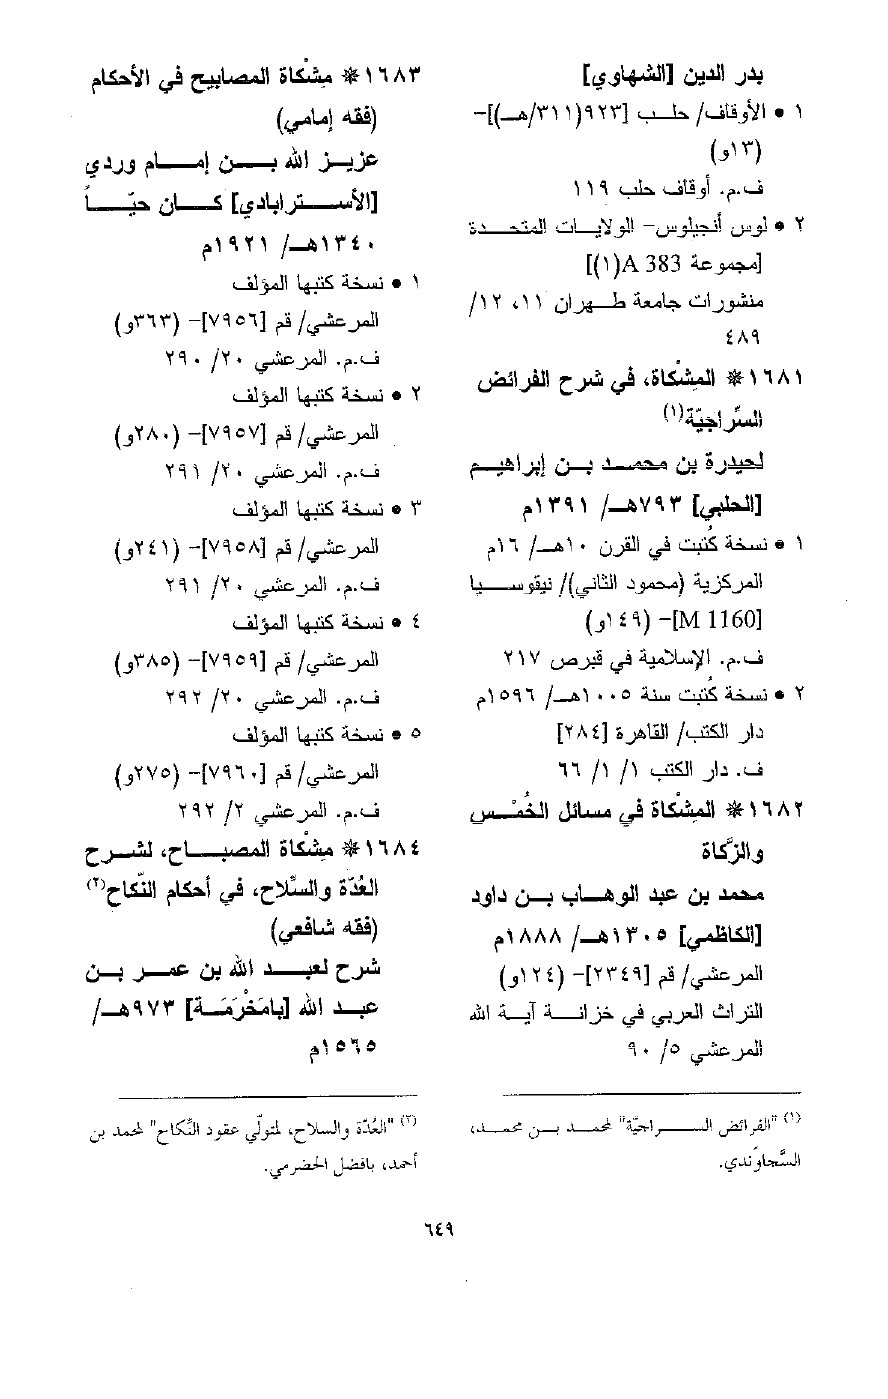 بدر الدين [الشهاوي]
١ • الأوقاف/ حلب [٩٢٣(٣١١/هـ)]-
(١٣و)
ف.م. أوقاف حلب ١١٩
٢ • لوس أنجيلوس- الولايات المتحدة
[مجموعة A 383(١)]
منشورات جامعة طهران ١١، ١٢/
٤٨٩
١٦٨١* المِشْكاة، في شرح الفرائض
السِّراجيّة(١)
لحيدرة بن محمد بن إبراهيم
[الحلبي] ٧٩٣هـ/ ١٣٩١م
١ • نسخة كُتبت في القرن ١٠هـ/ ١٦م
المركزية (محمود الثاني)/ نيقوسيا
[M 1160]- (١٤٩و)
ف.م. الإسلامية في قبرص ٢١٧
٢ • نسخة كُتبت سنة ١٠٠٥هـ/ ١٥٩٦م
دار الكتب/ القاهرة [٢٨٤]
ف. دار الكتب ١/ ١/ ٦٦
١٦٨٢* المِشْكاة في مسائل الخُمْس
والزَّكاة
محمد بن عبد الوهاب بن داود
[الكاظمي] ١٣٠٥هـ/ ١٨٨٨م
المرعشي/ قم [٢٣٤٩]- (١٢٤و)
التراث العربي في خزانة آية الله
المرعشي ٥/ ٩٠
(١) "الفرائض السراجيّة" لمحمد بن محمد،
السَّجاوَندي.
١٦٨٣* مِشْكاة المصابيح في الأحكام
(فقه إمامي)
عزيز الله بن إمام وردي
[الأسترابادي] كان حيّاً
١٣٤٠هـ/ ١٩٢١م
١ • نسخة كتبها المؤلف
المرعشي/ قم [٧٩٥٦]- (٣٦٣و)
ف.م. المرعشي ٢٠/ ٢٩٠
٢ • نسخة كتبها المؤلف
المرعشي/ قم [٧٩٥٧]- (٢٨٠و)
ف.م. المرعشي ٢٠/ ٢٩١
٣ • نسخة كتبها المؤلف
المرعشي/ قم [٧٩٥٨]- (٢٤١و)
ف.م. المرعشي ٢٠/ ٢٩١
٤ • نسخة كتبها المؤلف
المرعشي/ قم [٧٩٥٩]- (٣٨٥و)
ف.م. المرعشي ٢٠/ ٢٩٢
٥ • نسخة كتبها المؤلف
المرعشي/ قم [٧٩٦٠]- (٢٧٥و)
ف.م. المرعشي ٢/ ٢٩٢
١٦٨٤* مِشْكاة المصباح، لشرح
العُدّة والسِّلاح، في أحكام النّكاح(٢)
(فقه شافعي)
شرح لعبد الله بن عمر بن
عبد الله [بامَخْرَمَة] ٩٧٣هـ/
١٥٦٥م
(٢) "العُدّة والسلاح، لمتولّي عقود النِّكاح" لمحمد بن
أحمد، بافضل الحضرمي.
٦٤٩